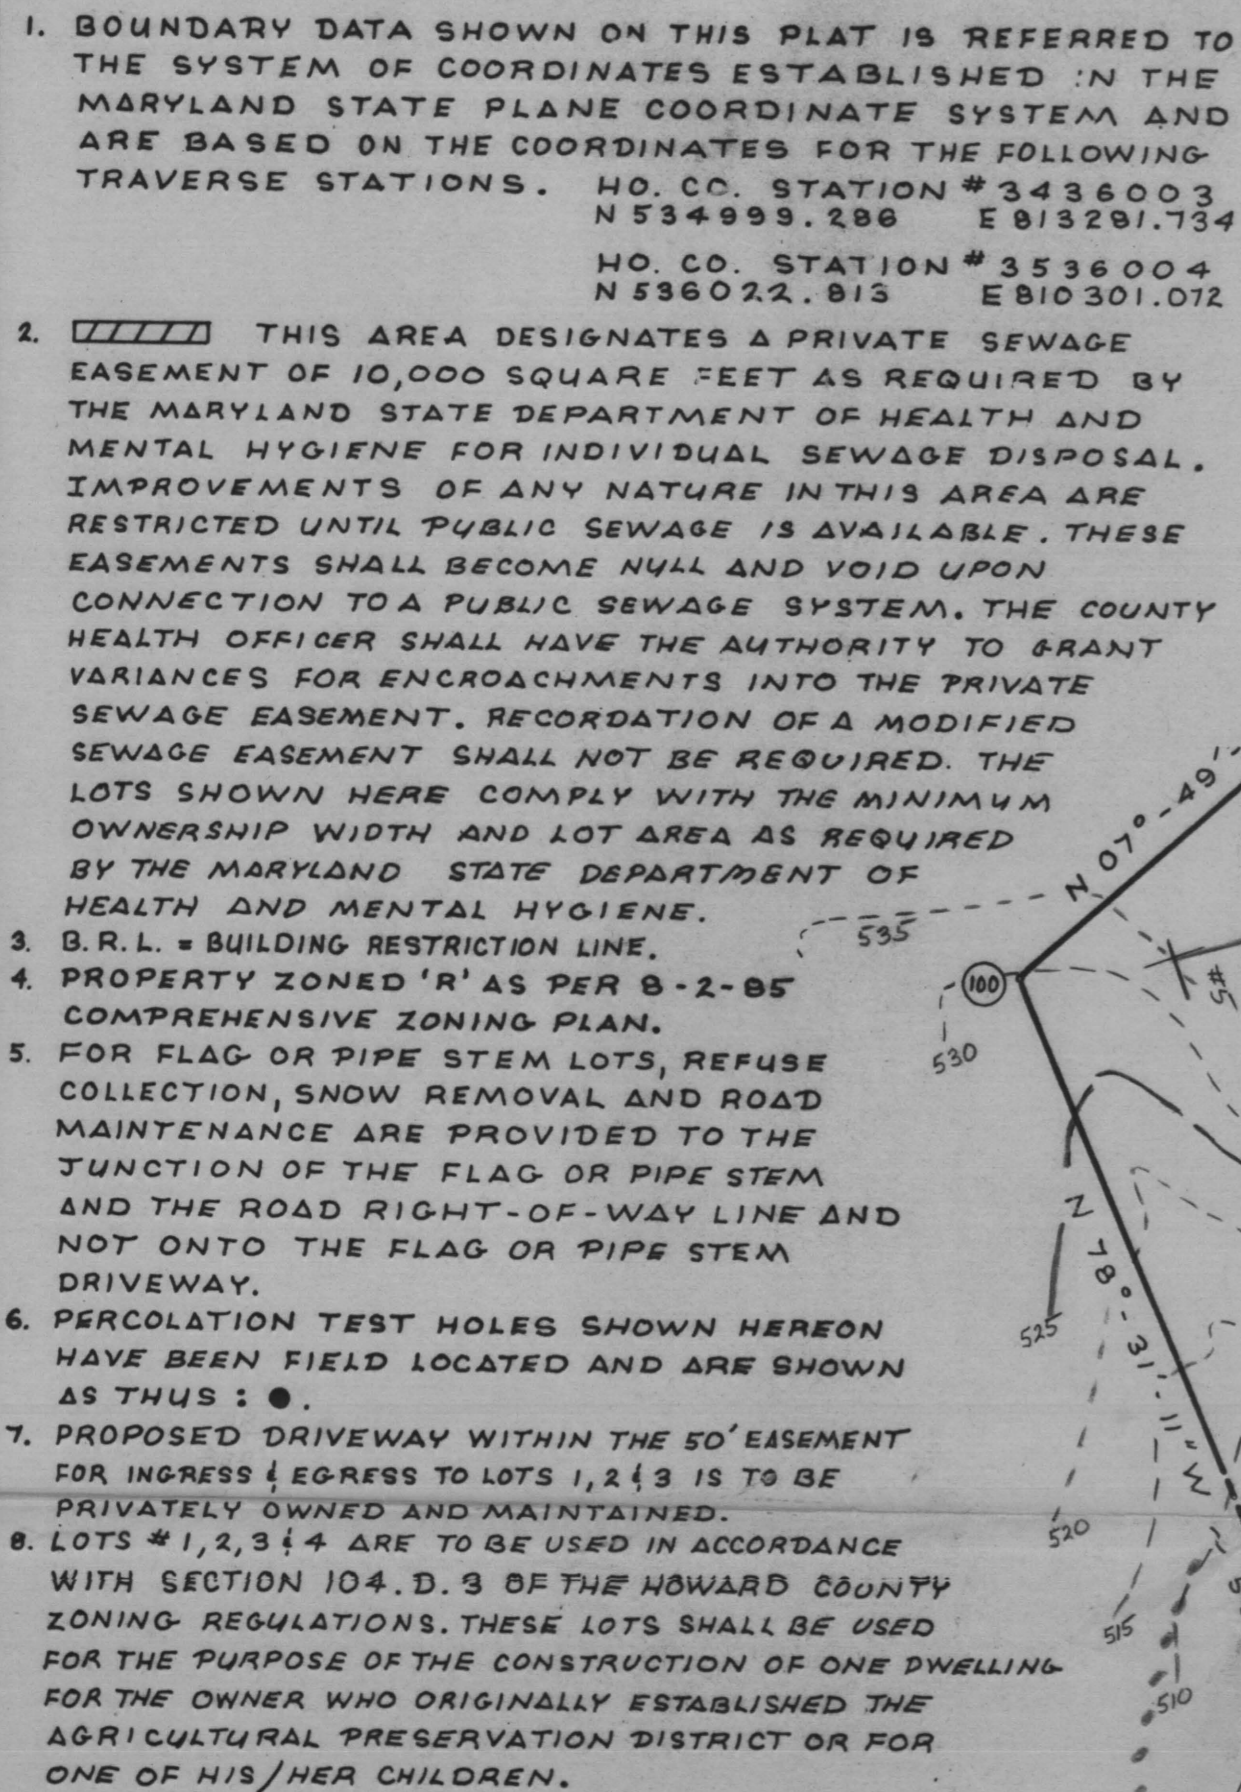 1. BOUNDARY DATA SHOWN ON THIS PLAT IS REFERRED TO
THE SYSTEM OF COORDINATES ESTABLISHED IN THE
MARYLAND STATE PLANE COORDINATE SYSTEM AND
ARE BASED ON THE COORDINATES FOR THE FOLLOWING
TRAVERSE STATIONS. HO. CO. STATION # 3436003
N 534999.286 E 813281.734
HO. CO. STATION # 3536004
N 536022.813 E 810301.072
2. THIS AREA DESIGNATES A PRIVATE SEWAGE
EASEMENT OF 10,000 SQUARE FEET AS REQUIRED BY
THE MARYLAND STATE DEPARTMENT OF HEALTH AND
MENTAL HYGIENE FOR INDIVIDUAL SEWAGE DISPOSAL.
IMPROVEMENTS OF ANY NATURE IN THIS AREA ARE
RESTRICTED UNTIL PUBLIC SEWAGE IS AVAILABLE. THESE
EASEMENTS SHALL BECOME NULL AND VOID UPON
CONNECTION TO A PUBLIC SEWAGE SYSTEM. THE COUNTY
HEALTH OFFICER SHALL HAVE THE AUTHORITY TO GRANT
VARIANCES FOR ENCROACHMENTS INTO THE PRIVATE
SEWAGE EASEMENT. RECORDATION OF A MODIFIED
SEWAGE EASEMENT SHALL NOT BE REQUIRED. THE
LOTS SHOWN HERE COMPLY WITH THE MINIMUM
OWNERSHIP WIDTH AND LOT AREA AS REQUIRED
BY THE MARYLAND STATE DEPARTMENT OF
HEALTH AND MENTAL HYGIENE.
3. B.R.L. = BUILDING RESTRICTION LINE.
4. PROPERTY ZONED 'R' AS PER 8-2-85
COMPREHENSIVE ZONING PLAN.
5. FOR FLAG OR PIPE STEM LOTS, REFUSE
COLLECTION, SNOW REMOVAL AND ROAD
MAINTENANCE ARE PROVIDED TO THE
JUNCTION OF THE FLAG OR PIPE STEM
AND THE ROAD RIGHT-OF-WAY LINE AND
NOT ONTO THE FLAG OR PIPE STEM
DRIVEWAY.
6. PERCOLATION TEST HOLES SHOWN HEREON
HAVE BEEN FIELD LOCATED AND ARE SHOWN
AS THUS : ●.
7. PROPOSED DRIVEWAY WITHIN THE 50' EASEMENT
FOR INGRESS & EGRESS TO LOTS 1, 2 & 3 IS TO BE
PRIVATELY OWNED AND MAINTAINED.
8. LOTS # 1, 2, 3 & 4 ARE TO BE USED IN ACCORDANCE
WITH SECTION 104.D.3 OF THE HOWARD COUNTY
ZONING REGULATIONS. THESE LOTS SHALL BE USED
FOR THE PURPOSE OF THE CONSTRUCTION OF ONE DWELLING
FOR THE OWNER WHO ORIGINALLY ESTABLISHED THE
AGRICULTURAL PRESERVATION DISTRICT OR FOR
ONE OF HIS/HER CHILDREN.
N 07° - 49'
535
100
#5
530
N 78° - 31' - 11" W
525
520
515
510